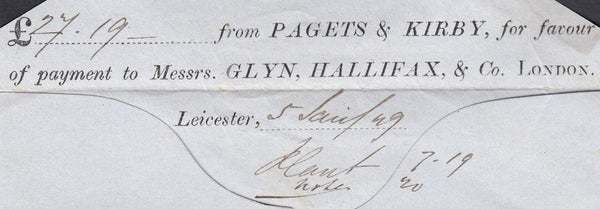 £27.19 — from PAGETS & KIRBY, for favour
of payment to Messrs. GLYN, HALLIFAX, & Co. LONDON.
Leicester, 5 49
7.19
notes 20